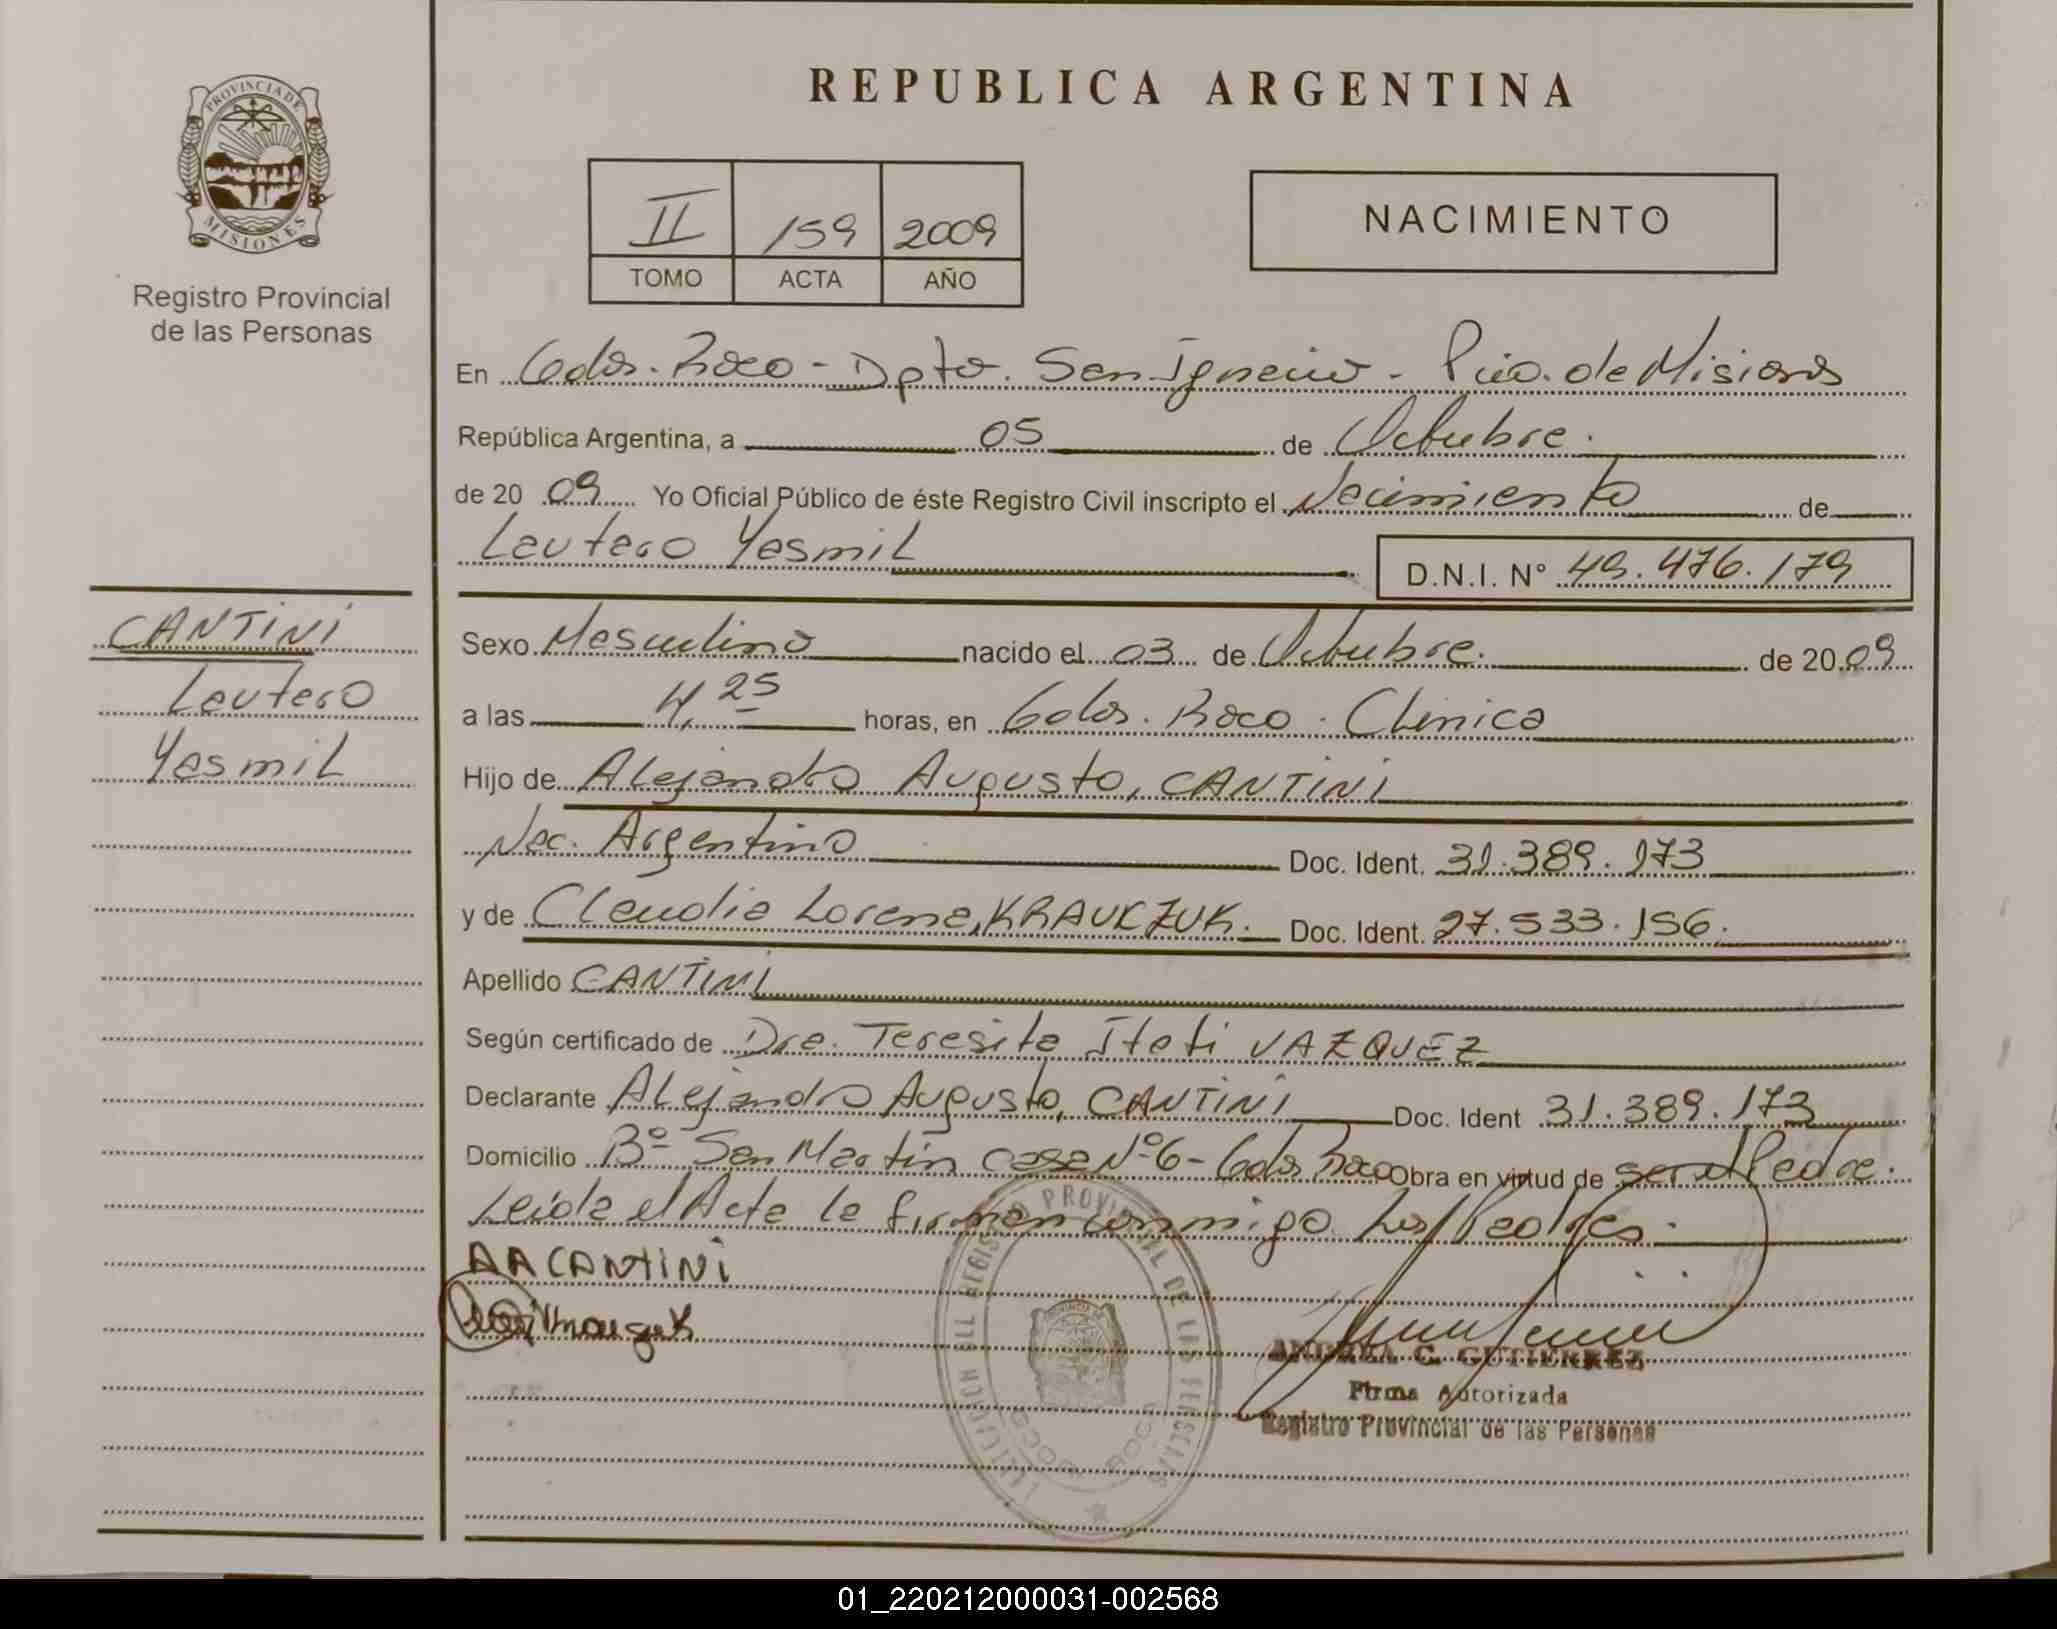 REPUBLICA ARGENTINA
PROVINCIA DE
MISIONES
Registro Provincial
de las Personas
II 159 2009
TOMO ACTA AÑO
NACIMIENTO
En Gdor. Roca - Dpto. San Ignacio - Pcia. de Misiones
República Argentina, a 05 de Octubre.
de 20 09 Yo Oficial Público de éste Registro Civil inscripto el Nacimiento de
Leutaro Yasmil
D.N.I. N° 49.476.179
CANTINI
Leutaro
Yasmil
Sexo Masculino nacido el 03 de Octubre. de 20 09
a las 4,25 horas, en Gdor. Roca. Clinica
Hijo de Alejandro Augusto, CANTINI
Nac. Argentino Doc. Ident. 31.389.173
y de Claudia Lorena, KRAUCZUK. Doc. Ident. 27.533.156.
Apellido CANTINI
Según certificado de Dra. Teresita Itati VAZQUEZ
Declarante Alejandro Augusto, CANTINI Doc. Ident 31.389.173
Domicilio B° San Martin casa N°6 - Gdor. Roca Obra en virtud de ser el Padre.
Leida el Acta la firman conmigo Los Padres.
AACANTINI
REGISTRO PROVINCIAL DE LAS PERSONAS
GDOR. ROCA
ANDREA C. GUTIERREZ
Firma Autorizada
Registro Provincial de las Personas
01_220212000031-002568